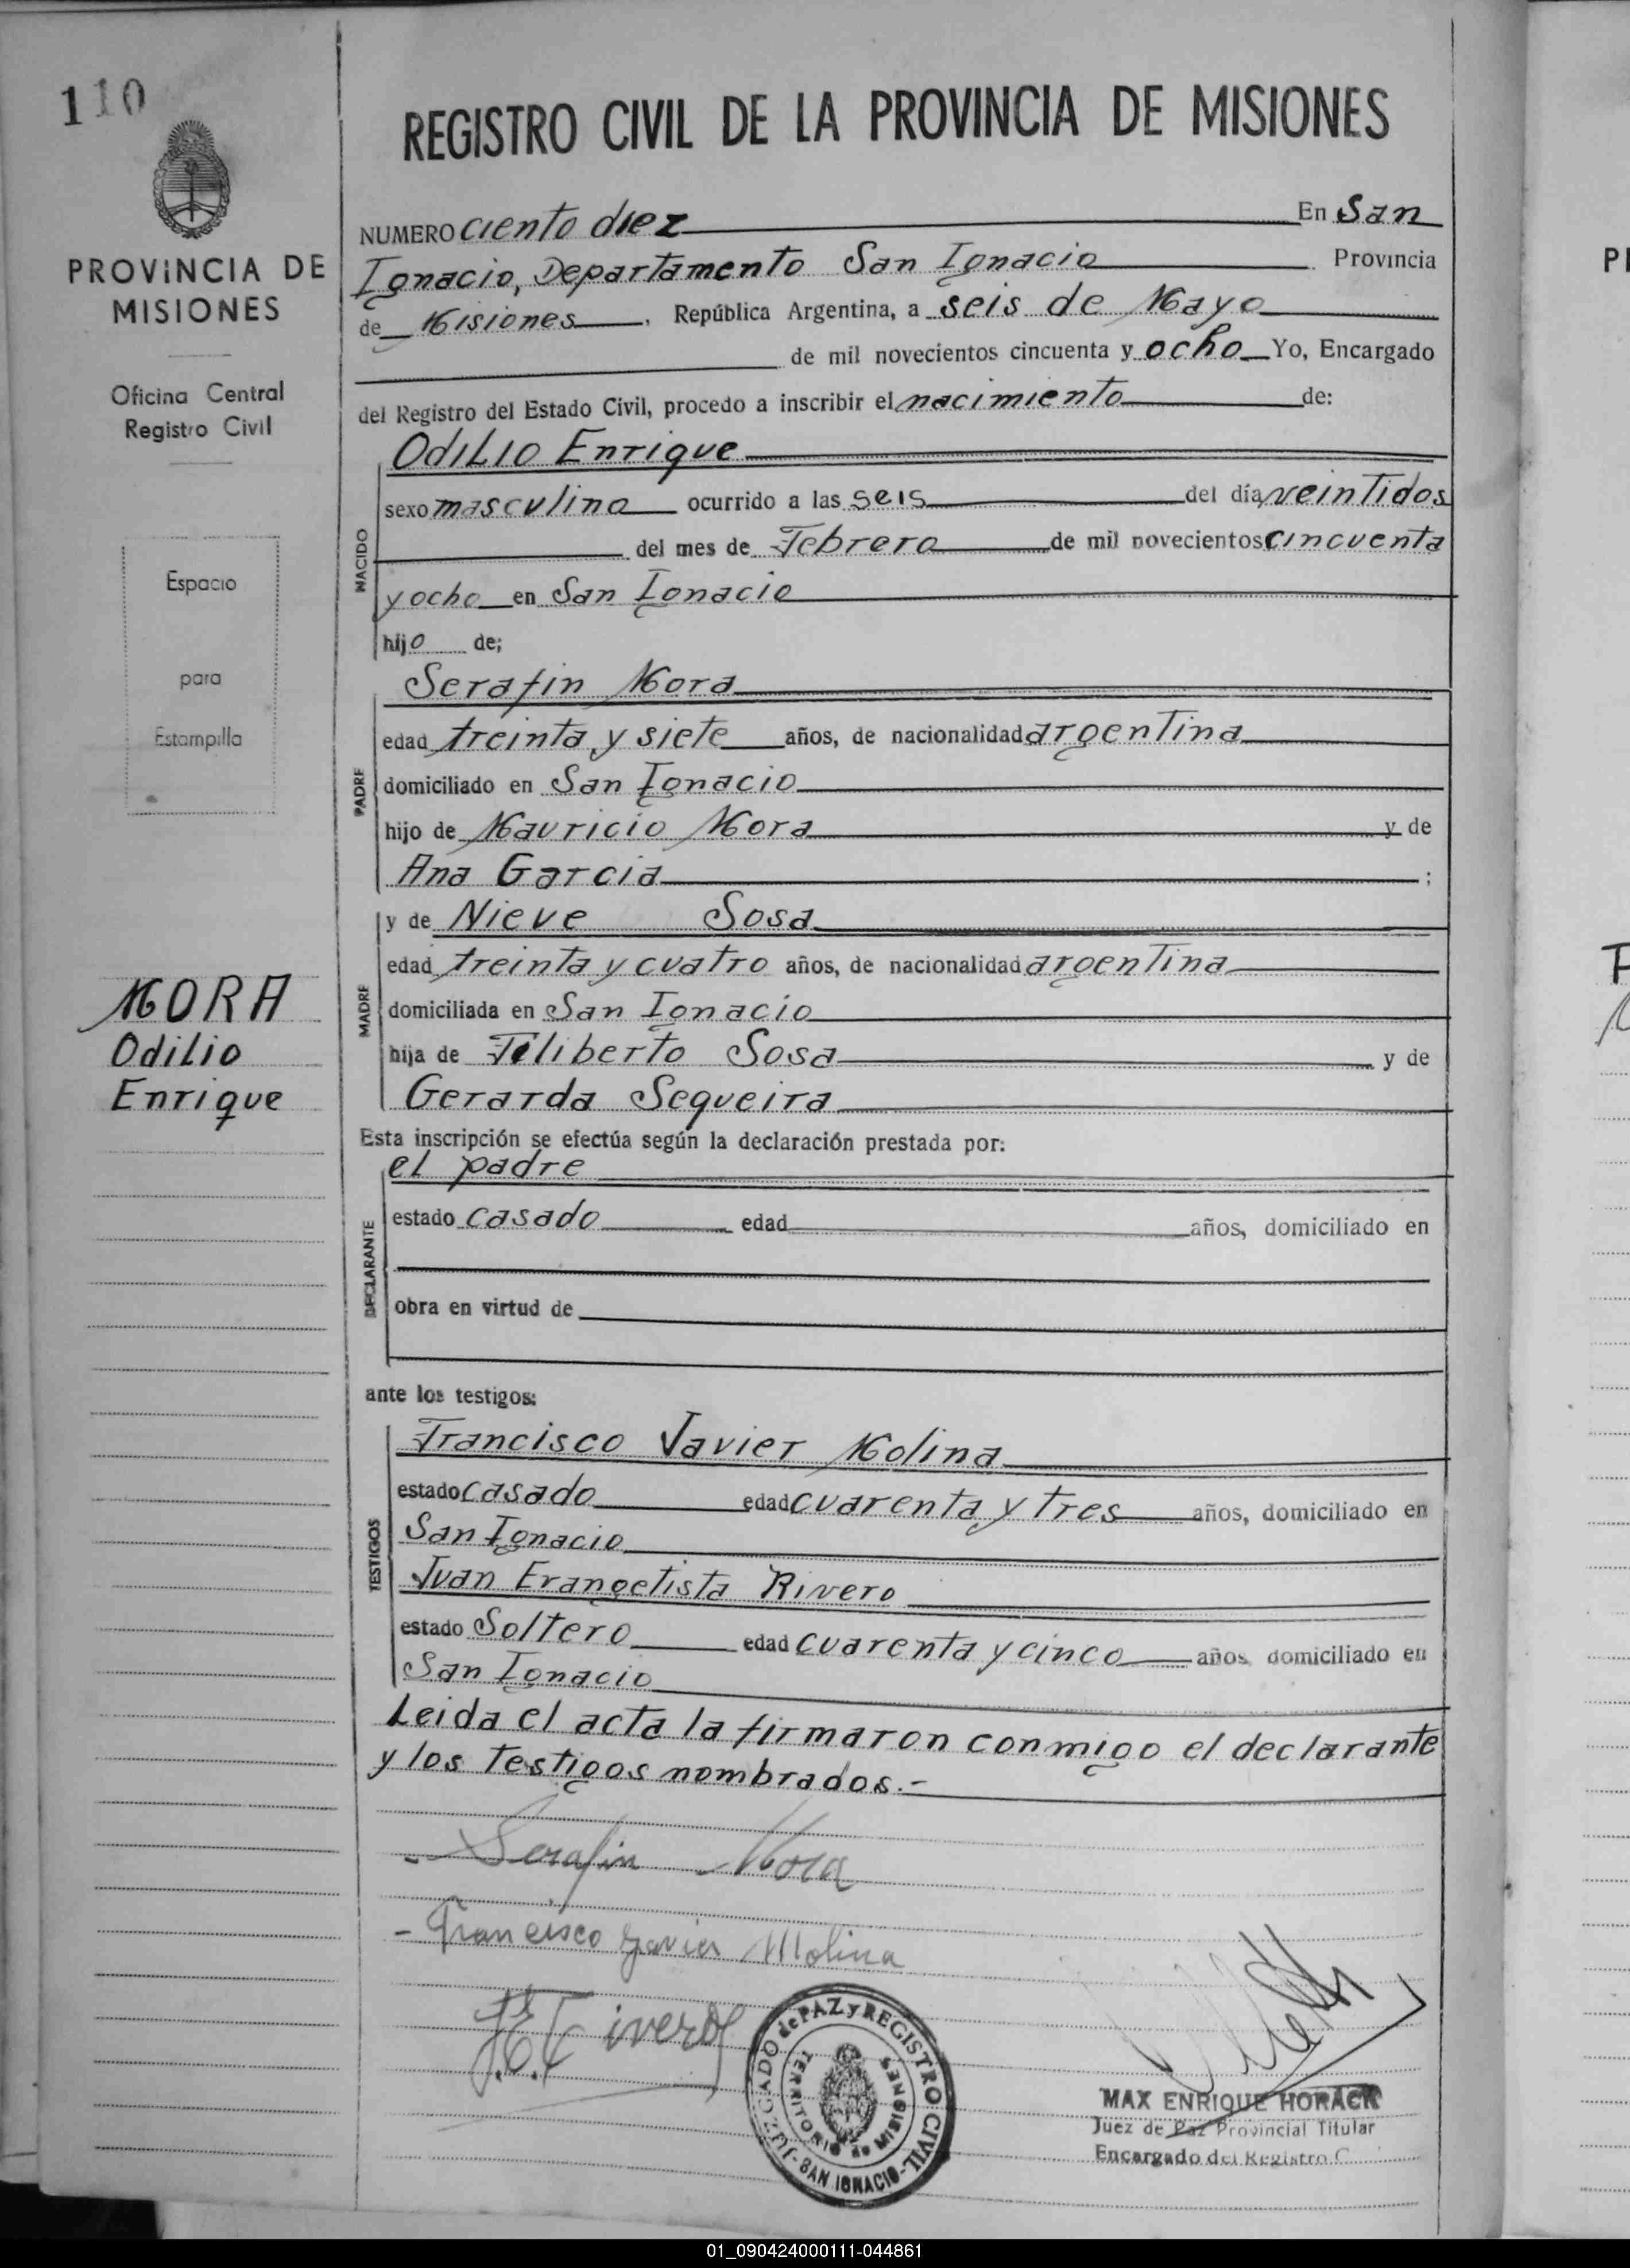 110
PROVINCIA DE
MISIONES
Oficina Central
Registro Civil
Espacio
para
Estampilla
MORA
Odilio
Enrique
REGISTRO CIVIL DE LA PROVINCIA DE MISIONES
NUMERO ciento diez En San
Ignacio, Departamento San Ignacio Provincia
de Misiones, República Argentina, a seis de Mayo
de mil novecientos cincuenta y ocho Yo, Encargado
del Registro del Estado Civil, procedo a inscribir el nacimiento de:
NACIDO
Odilio Enrique
sexo masculino ocurrido a las seis del día veintidos
del mes de Febrero de mil novecientos cincuenta
y ocho en San Ignacio
hijo de;
PADRE
Serafin Mora
edad treinta y siete años, de nacionalidad argentina
domiciliado en San Ignacio
hijo de Mauricio Mora y de
Ana Garcia ;
MADRE
y de Nieve Sosa
edad treinta y cuatro años, de nacionalidad argentina
domiciliada en San Ignacio
hija de Filiberto Sosa y de
Gerarda Sequeira
Esta inscripción se efectúa según la declaración prestada por:
DECLARANTE
el padre
estado casado edad años, domiciliado en
obra en virtud de
ante los testigos:
TESTIGOS
Francisco Javier Molina
estado casado edad cuarenta y tres años, domiciliado en
San Ignacio
Juan Evangelista Rivero
estado Soltero edad cuarenta y cinco años domiciliado en
San Ignacio
Leida el acta la firmaron conmigo el declarante
y los testigos nombrados.-
- Serafin Mora
- Francisco Javier Molina
J. E. Rivero
JUZGADO de PAZ y REGISTRO CIVIL
TERRITORIO de MISIONES
- SAN IGNACIO -
MAX ENRIQUE HORACK
Juez de Paz Provincial Titular
Encargado del Registro C
01_090424000111-044861